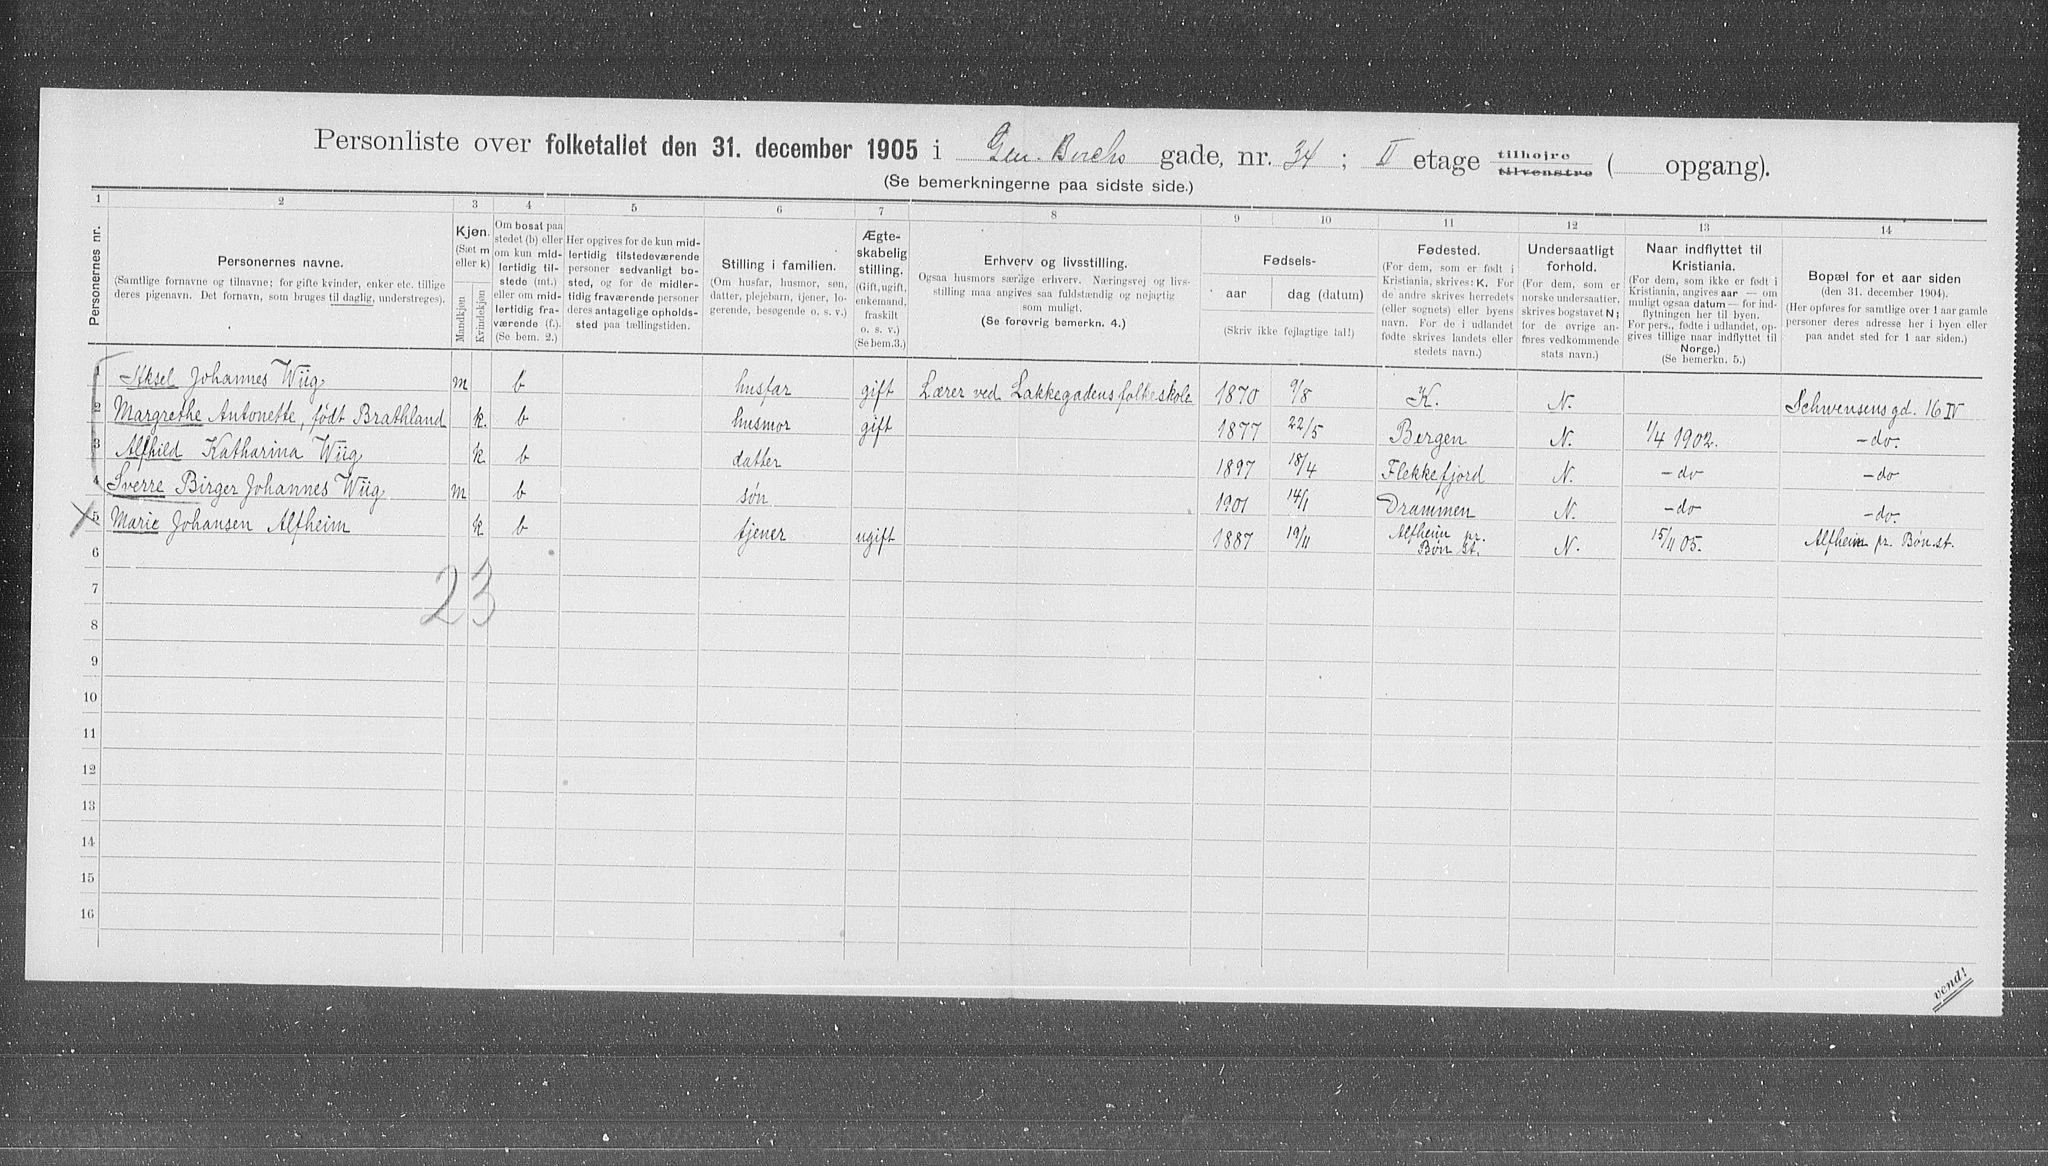 Personliste over folketallet den 31. december 1905 i Gen. Birchs gade, nr. 34; II etage tilhøjre tilvenstre ( opgang).
(Se bemerkningerne paa sidste side.)
1 2 3 4 5 6 7 8 9 10 11 12 13 14
Personernes nr.
Personernes navne.
(Samtlige fornavne og tilnavne; for gifte kvinder, enker etc. tillige
deres pigenavn. Det fornavn, som bruges til daglig, understreges).
Kjøn.
(Sæt m
eller k)
Mandkjøn
Kvindekjøn
Om bosat paa
stedet (b) eller
om kun mid-
lertidig til-
stede (mt.)
eller om mid-
lertidig fra-
værende (f.).
(Se bem. 2.)
Her opgives for de kun mid-
lertidig tilstedeværende
personer sedvanligt bo-
sted, og for de midler-
tidig fraværende personer
deres antagelige opholds-
sted paa tællingstiden.
Stilling i familien.
(Om husfar, husmor, søn,
datter, plejebarn, tjener, lo-
gerende, besøgende o. s. v.)
Ægte-
skabelig
stilling.
(Gift, ugift,
enkemand,
fraskilt
o. s. v.)
(Se bem. 3.)
Erhverv og livsstilling.
Ogsaa husmors særlige erhverv. Næringsvej og livs-
stilling maa angives saa fuldstændig og nøjagtig
som muligt.
(Se forøvrig bemerkn. 4.)
Fødsels-
aar
dag (datum)
(Skriv ikke fejlagtige tal!)
Fødested.
(For dem, som er født i
Kristiania, skrives: K. For
de andre skrives herredets
(eller sognets) eller byens
navn. For de i udlandet
fødte skrives landets eller
stedets navn.)
Undersaatligt
forhold.
(For dem, som er
norske undersaatter,
skrives bogstavet N;
for de øvrige an-
føres vedkommende
stats navn.)
Naar indflyttet til
Kristiania.
(For dem, som ikke er født i
Kristiania, angives aar — om
muligt ogsaa datum — for ind-
flytningen her til byen.
For pers., fødte i udlandet, op-
gives tillige naar indflyttet til
Norge.)
(Se bemerkn. 5.)
Bopæl for et aar siden
(den 31. december 1904).
(Her opføres for samtlige over 1 aar gamle
personer deres adresse her i byen eller
paa andet sted for 1 aar siden.)
1 Aksel Johannes Wiig m b husfar gift Lærer ved Lakkegadens folkeskole 1870 9/8 K. N. Schwensens gd. 16 IV
2 Margrethe Antonette, født Brathland k. b husmor gift 1877 22/5 Bergen N. 1/4 1902. - do.
3 Alfhild Katharina Wiig k b datter 1897 18/4 Flekkefjord N. - do - do
4 Sverre Birger Johannes Wiig m b søn 1901 14/1 Drammen N. - do - do.
5 Marie Johansen Alfheim k b tjener ugift 1887 19/11 Alfheim pr. Bøn st. N. 15/11 05. Alfheim pr. Bøn st.
6
23
7
8
9
10
11
12
13
14
15
16
vend!